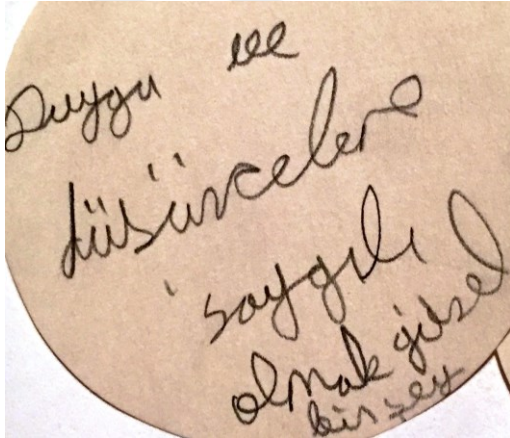 Duygu ve
düşüncelere
saygılı
olmak güzel
birşey